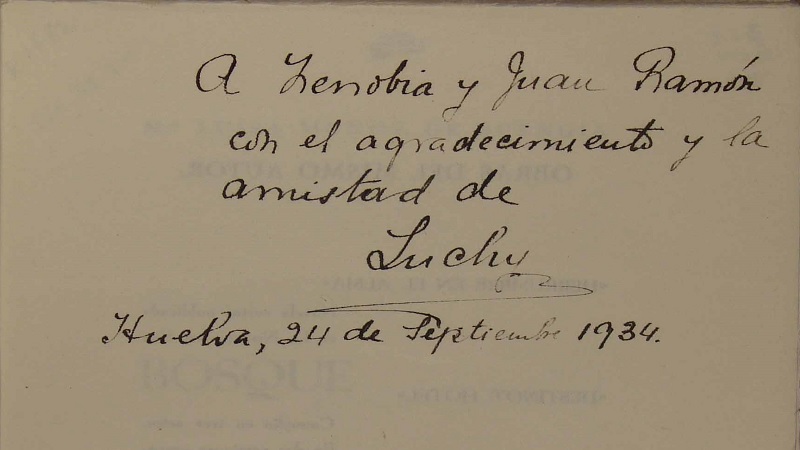 A Zenobia y Juan Ramón
con el agradecimiento y la
amistad de
Luchy
Huelva, 24 de Septiembre 1934.
OBRAS DEL MISMO AUTOR.
BOSQUE